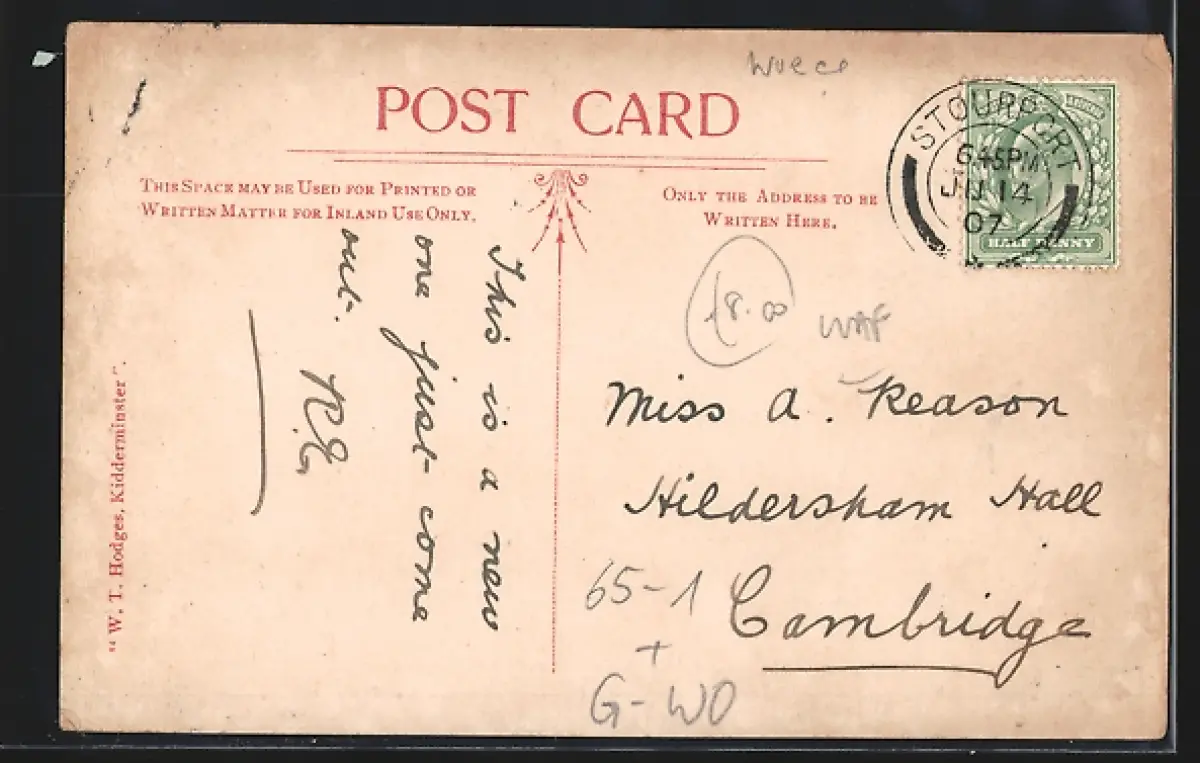 Worcs
POST CARD
THIS SPACE MAY BE USED FOR PRINTED OR
WRITTEN MATTER FOR INLAND USE ONLY.
ONLY THE ADDRESS TO BE
WRITTEN HERE.
STOURPORT
6.45PM
JU 14
07
HALF PENNY
This is a new
one just come
out.
R.E.
£8.00
Miss A. Reason
Hildersham Hall
Cambridge
65-1
+
G-WO
"W. T. Hodges, Kidderminster".